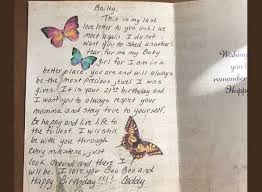 Bailey,
This is my last
love letter to you until we
meet again. I do not
want you to shed another
tear for me my Baby
girl for I am in a
better place. You are and will always
be the most precious jewel I was
given. It is your 21st birthday and
I want you to always respect your
momma and stay true to yourself.
Be happy and live life to
the fullest. I will still
be with you through
every milestone, just
look around and there I
will be. I love you Boo Boo and
Happy Birthday!!! Daddy
Wishing
you
remember
Happ